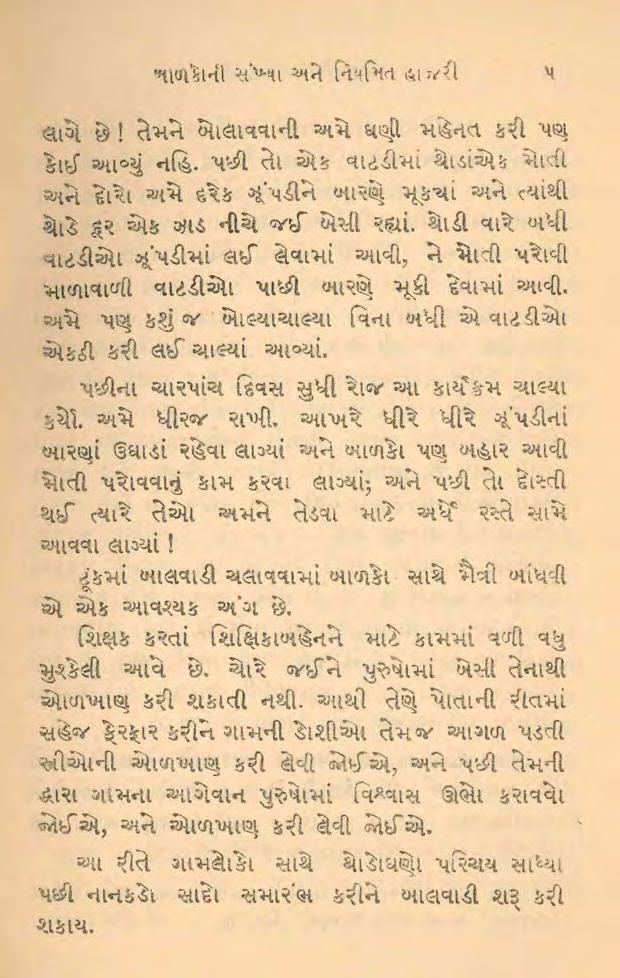 બાળકોની સંખ્યા અને નિયમિત હાજરી ૫
લાગે છે! તેમને બોલાવવાની અમે ઘણી મહેનત કરી પણ
કોઈ આવ્યું નહિ. પછી તો એક વાટકીમાં થોડાંએક મોતી
અને દોરો અમે દરેક ઝૂંપડીને બારણે મૂકયાં અને ત્યાંથી
થોડે દૂર એક ઝાડ નીચે જઈ બેસી રહ્યાં. થોડી વારે બધી
વાટકીઓ ઝૂંપડીમાં લઈ લેવામાં આવી, ને મોતી પરોવી
માળાવાળી વાટકીઓ પાછી બારણે મૂકી દેવામાં આવી.
અમે પણ કશું જ બોલ્યાચાલ્યા વિના બધી એ વાટકીઓ
એકઠી કરી લઈ ચાલ્યાં આવ્યાં.
પછીના ચારપાંચ દિવસ સુધી રોજ આ કાર્યક્રમ ચાલ્યા
કર્યો. અમે ધીરજ રાખી. આખરે ધીરે ધીરે ઝૂંપડીનાં
બારણાં ઉઘાડાં રહેવા લાગ્યાં અને બાળકો પણ બહાર આવી
મોતી પરોવવાનું કામ કરવા લાગ્યાં; અને પછી તો દોસ્તી
થઈ ત્યારે તેઓ અમને તેડવા માટે અર્ધે રસ્તે સામે
આવવા લાગ્યાં !
ટૂંકમાં બાલવાડી ચલાવવામાં બાળકો સાથે મૈત્રી બાંધવી
એ એક આવશ્યક અંગ છે.
શિક્ષક કરતાં શિક્ષિકાબહેનને માટે કામમાં વળી વધુ
મુશ્કેલી આવે છે. ચોરે જઈને પુરુષોમાં બેસી તેનાથી
ઓળખાણ કરી શકાતી નથી. આથી તેણે પોતાની રીતમાં
સહેજ ફેરફાર કરીને ગામની ડોશીઓ તેમજ આગળ પડતી
સ્ત્રીઓની ઓળખાણ કરી લેવી જોઈએ, અને પછી તેમની
દ્વારા ગામના આગેવાન પુરુષોમાં વિશ્વાસ ઊભો કરાવવો
જોઈએ, અને ઓળખાણ કરી લેવી જોઈએ.
આ રીતે ગામલોકો સાથે થોડોઘણો પરિચય સાધ્યા
પછી નાનકડો સાદો સમારંભ કરીને બાલવાડી શરૂ કરી
શકાય.